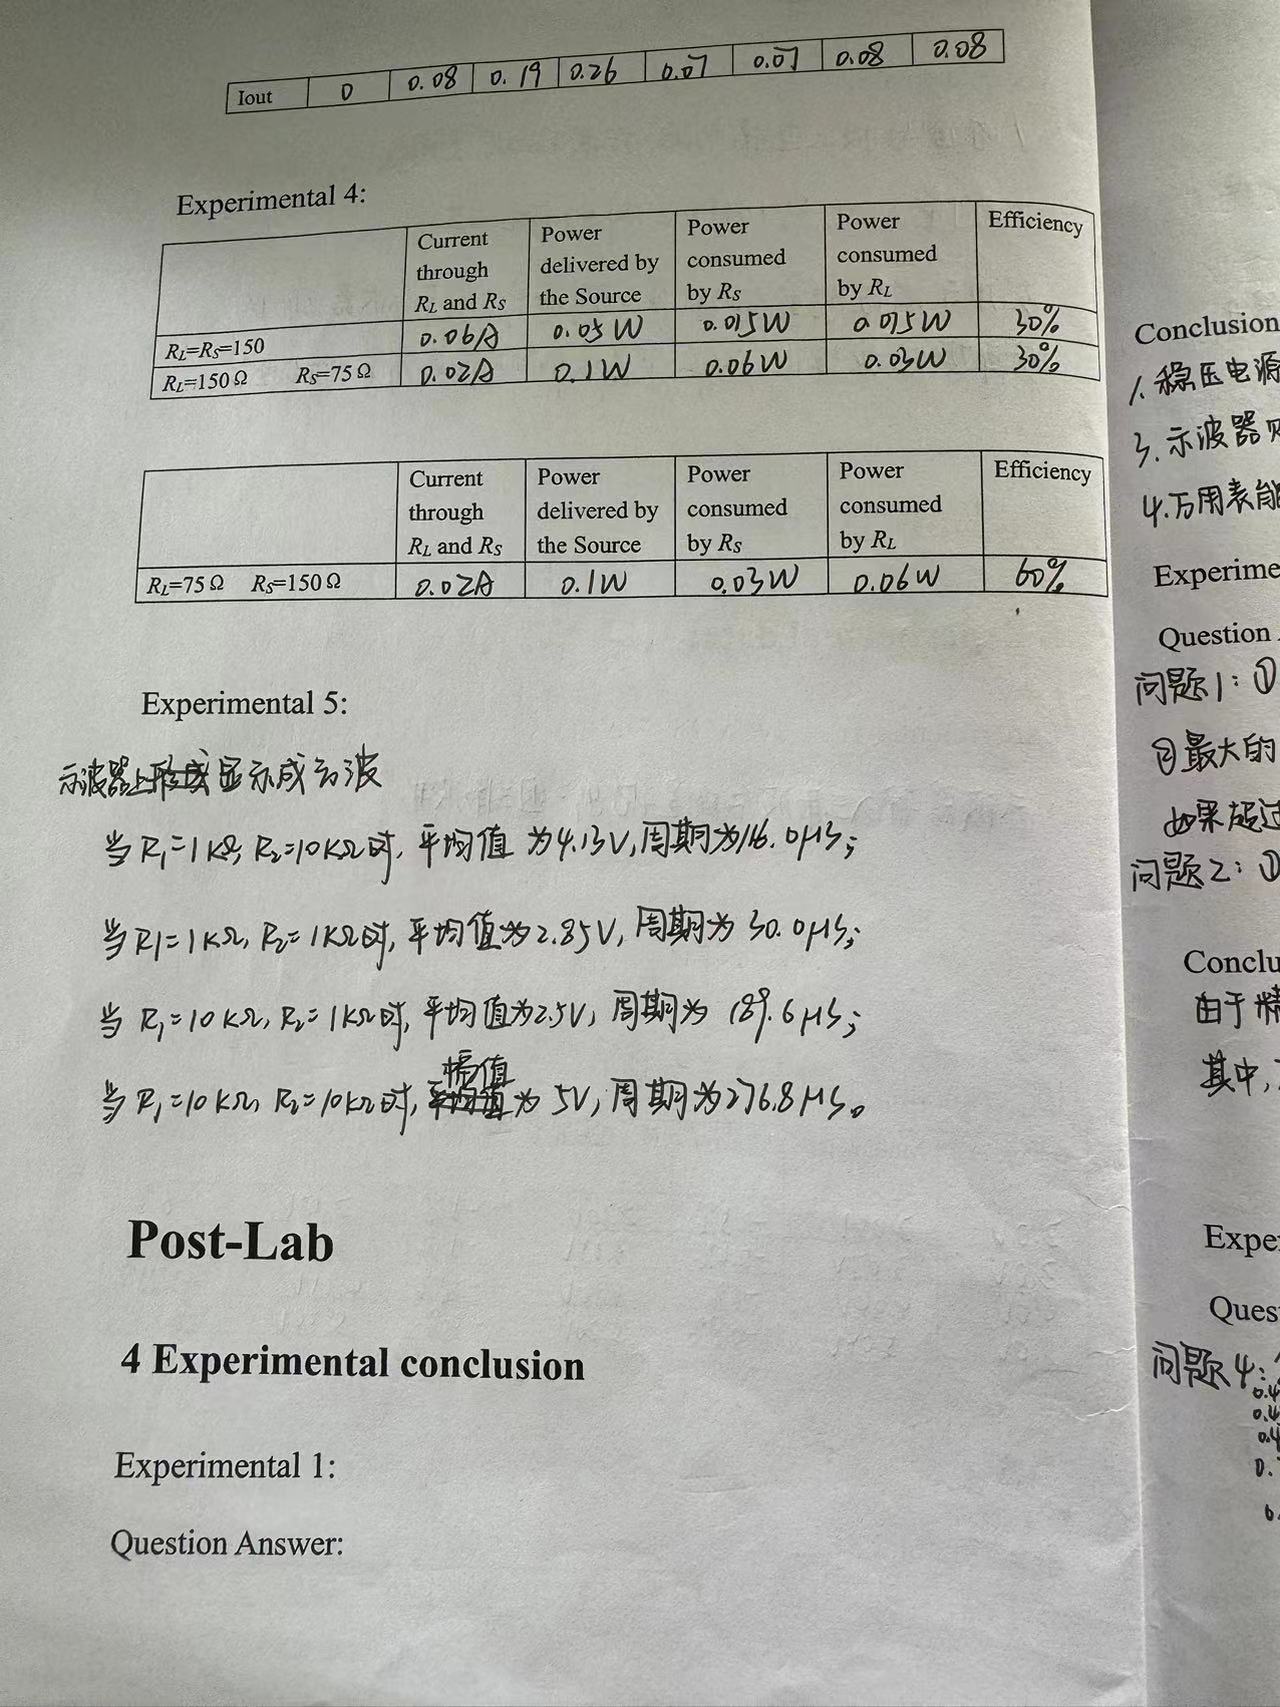 Iout 0 0.08 0.19 0.26 0.07 0.07 0.08 0.08
Experimental 4:
Current through RL and RS Power delivered by the Source Power consumed by RS Power consumed by RL Efficiency
RL=RS=150 0.06A 0.05W 0.015W 0.015W 30%
RL=150Ω RS=75Ω 0.02A 0.1W 0.06W 0.03W 30%
Current through RL and RS Power delivered by the Source Power consumed by RS Power consumed by RL Efficiency
RL=75Ω RS=150Ω 0.02A 0.1W 0.03W 0.06W 60%
Experimental 5:
示波器上显示成方波
当R₁=1KΩ, R₂=10KΩ时, 平均值为4.13V, 周期为116.0μs;
当R1=1KΩ, R₂=1KΩ时, 平均值为2.85V, 周期为30.0μs;
当R₁=10KΩ, R₂=1KΩ时, 平均值为2.5V, 周期为189.6μs;
当R₁=10KΩ, R₂=10KΩ时, 幅值为5V, 周期为276.8μs。
Post-Lab
4 Experimental conclusion
Experimental 1:
Question Answer:
Conclusion
1. 稳压电源
3. 示波器
4. 万用表能
Experime
Question
问题1: ①
②最大的
如果超过
问题2: ①
Conclu
由于精
其中,
Expe
Ques
问题4: